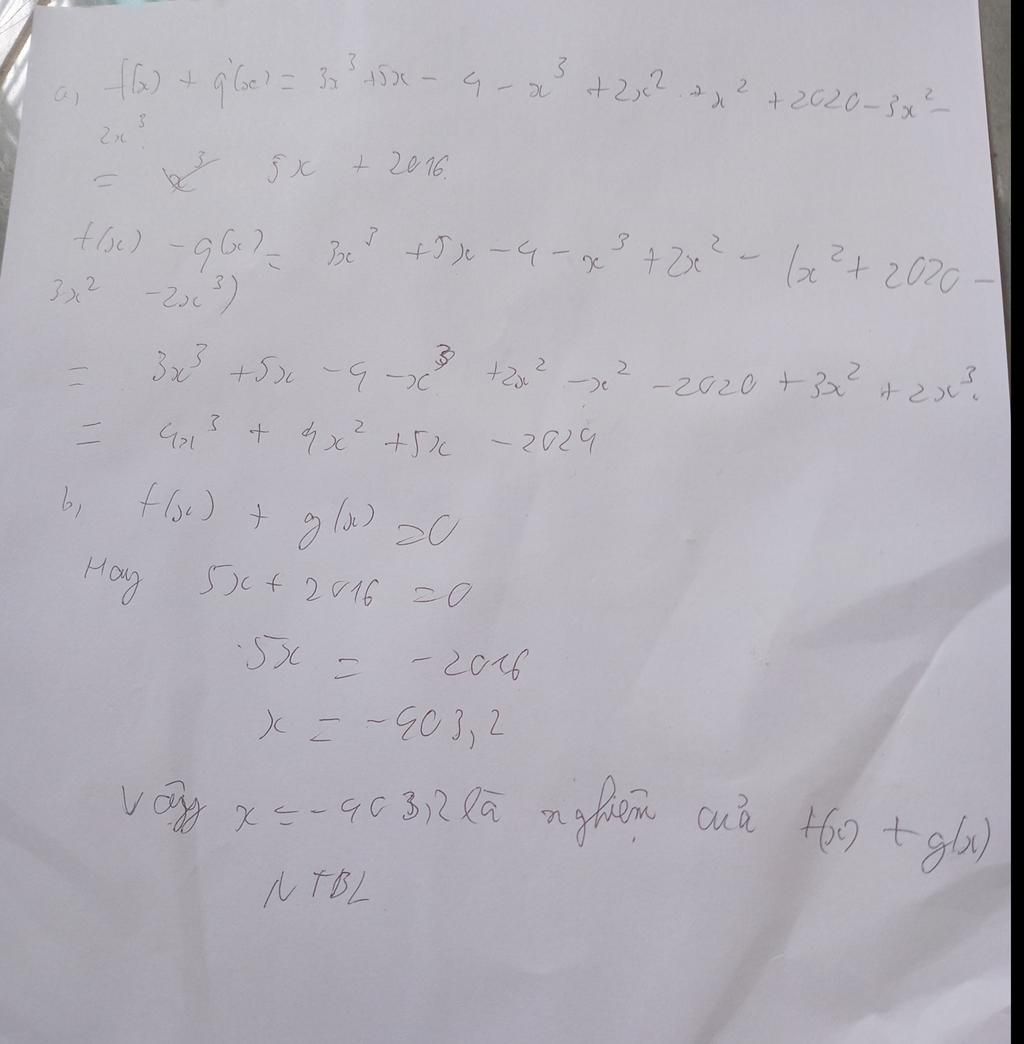 a, f(x) + g(x) = 3x³ + 5x - 4 - x³ + 2x² + x² + 2020 - 3x² -
2x³
= 5x + 2016.
f(x) - g(x) = 3x³ + 5x - 4 - x³ + 2x² - (x² + 2020 -
3x² - 2x³)
= 3x³ + 5x - 4 - x³ + 2x² - x² - 2020 + 3x² + 2x³.
= 4x³ + 4x² + 5x - 2024
b, f(x) + g(x) = 0
Hay 5x + 2016 = 0
5x = -2016
x = -403,2
Vậy x = -403,2 là nghiệm của f(x) + g(x)
NTBL